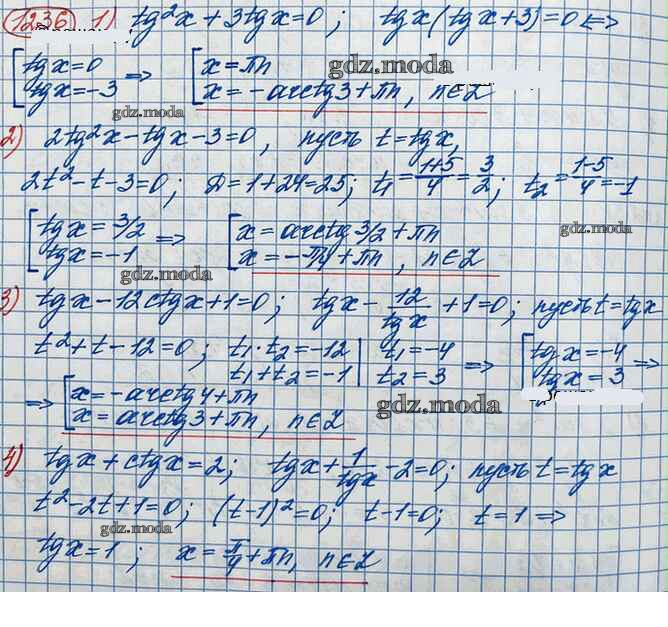 1236 1) tg²x + 3tgx = 0; tgx(tgx+3) = 0 <=>
[ tgx = 0 => [ x = πn
tgx = -3 x = -arctg3 + πn, n∈Z
gdz.moda
gdz.moda
2) 2tg²x - tgx - 3 = 0, пусть t = tgx,
2t² - t - 3 = 0; D = 1+24 = 25; t₁ = (1+5)/4 = 3/2; t₂ = (1-5)/4 = -1
[ tgx = 3/2 => [ x = arctg 3/2 + πn
tgx = -1 x = -π/4 + πn, n∈Z
gdz.moda
gdz.moda
3) tgx - 12ctgx + 1 = 0; tgx - 12/tgx + 1 = 0; пусть t = tgx
t² + t - 12 = 0; t₁·t₂ = -12 | t₁ = -4 => [ tgx = -4 =>
t₁ + t₂ = -1 | t₂ = 3 tgx = 3
=> [ x = -arctg4 + πn
x = arctg3 + πn, n∈Z
gdz.moda
4) tgx + ctgx = 2; tgx + 1/tgx - 2 = 0; пусть t = tgx
t² - 2t + 1 = 0; (t-1)² = 0; t - 1 = 0; t = 1 =>
gdz.moda
tgx = 1; x = π/4 + πn, n∈Z